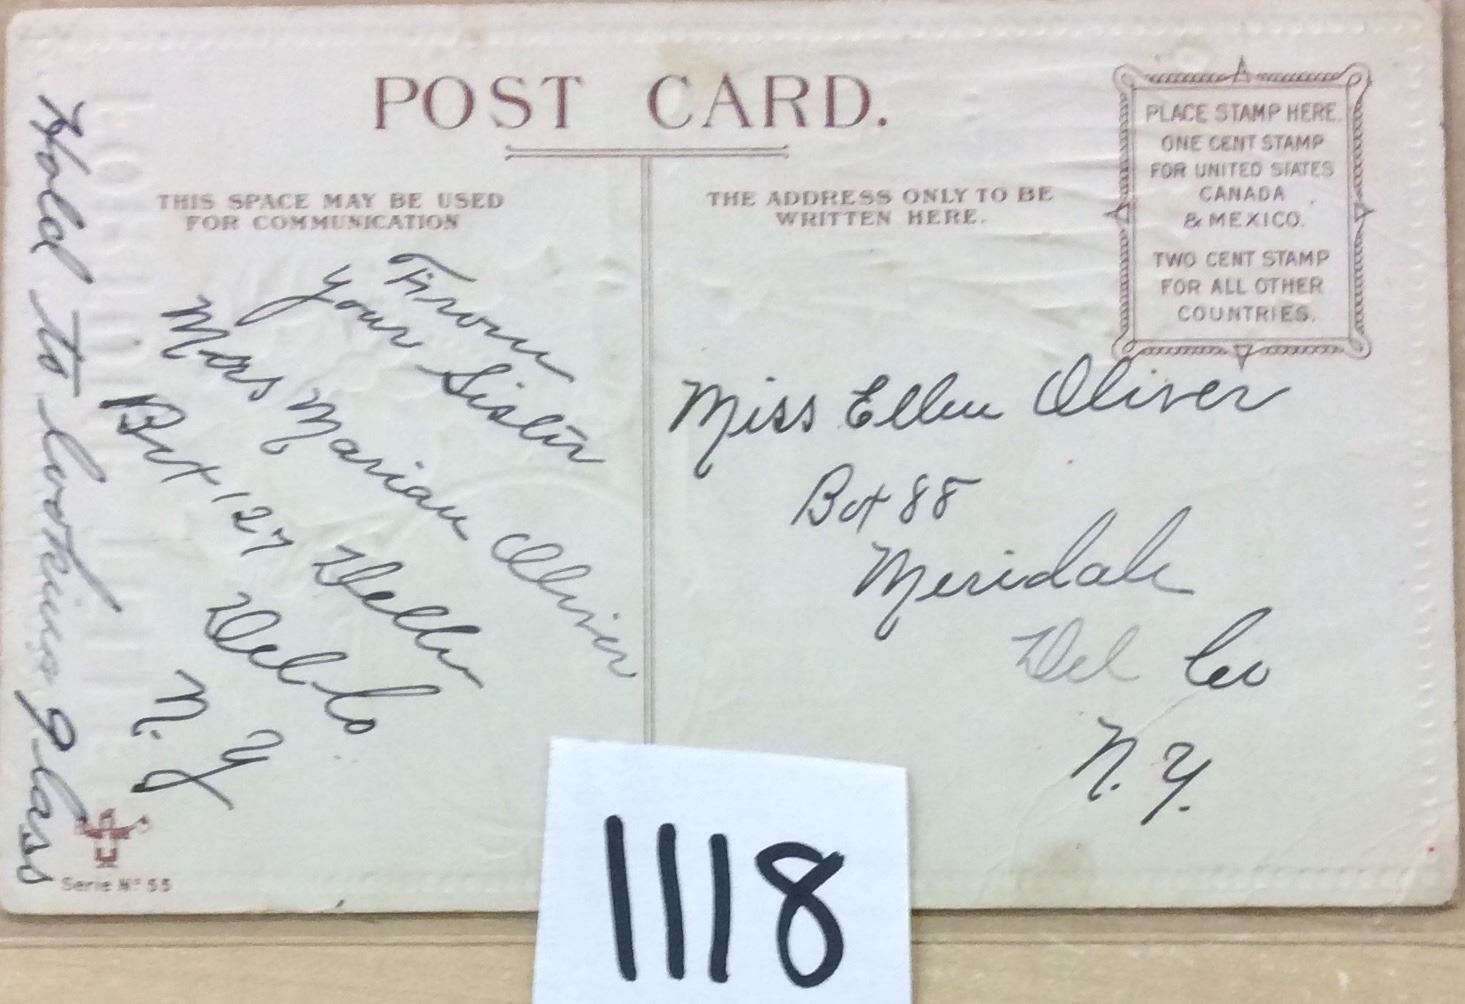 POST CARD.
THIS SPACE MAY BE USED
FOR COMMUNICATION
THE ADDRESS ONLY TO BE
WRITTEN HERE.
PLACE STAMP HERE.
ONE CENT STAMP
FOR UNITED STATES
CANADA
& MEXICO.
TWO CENT STAMP
FOR ALL OTHER
COUNTRIES.
Hold to looking glass
From
your Sister
Mrs Marian Oliver
Box 127 Delhi
Del Co.
N. Y
Miss Ellen Oliver
Box 88
Meridale
Del Co
N. Y.
Serie No 55
1118